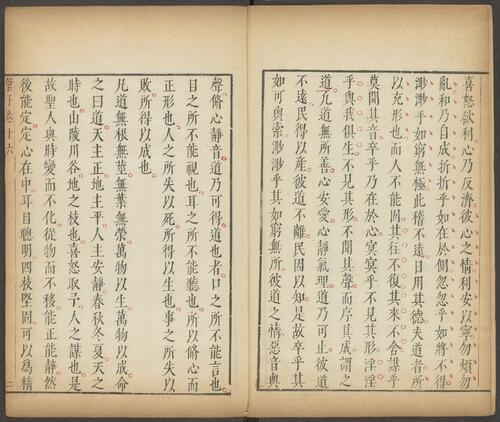 喜怒欲利心乃反濟彼心之情利安以寧勿煩勿
亂和乃自成折折乎如在於側忽忽乎如將不得
渺渺乎如窮無極此稽不遠日用其德夫道者所
以充形也而人不能固其往不復其來不舍謀乎
莫聞其音卒乎乃在於心冥冥乎不見其形淫淫
乎與我俱生不見其形不聞其聲而序其成謂之
道凡道無所善心安愛心靜氣理道乃可止彼道
不遠民得以產彼道不離民因以知是故卒乎其
如可與索渺渺乎其如窮無所彼道之情惡音與
聲脩心靜音道乃可得道也者口之所不能言也
目之所不能視也耳之所不能聽也所以脩心而
正形也人之所失以死所得以生也事之所失以
敗所得以成也
凡道無根無莖無葉無榮萬物以生萬物以成命
之曰道天主正地主平人主安靜春秋冬夏天之
時也山陵川谷地之枝也喜怒取予人之謀也是
故聖人與時變而不化從物而不移能正能靜然
後能定定心在中耳目聰明四枝堅固可以爲精
管子卷十六 二